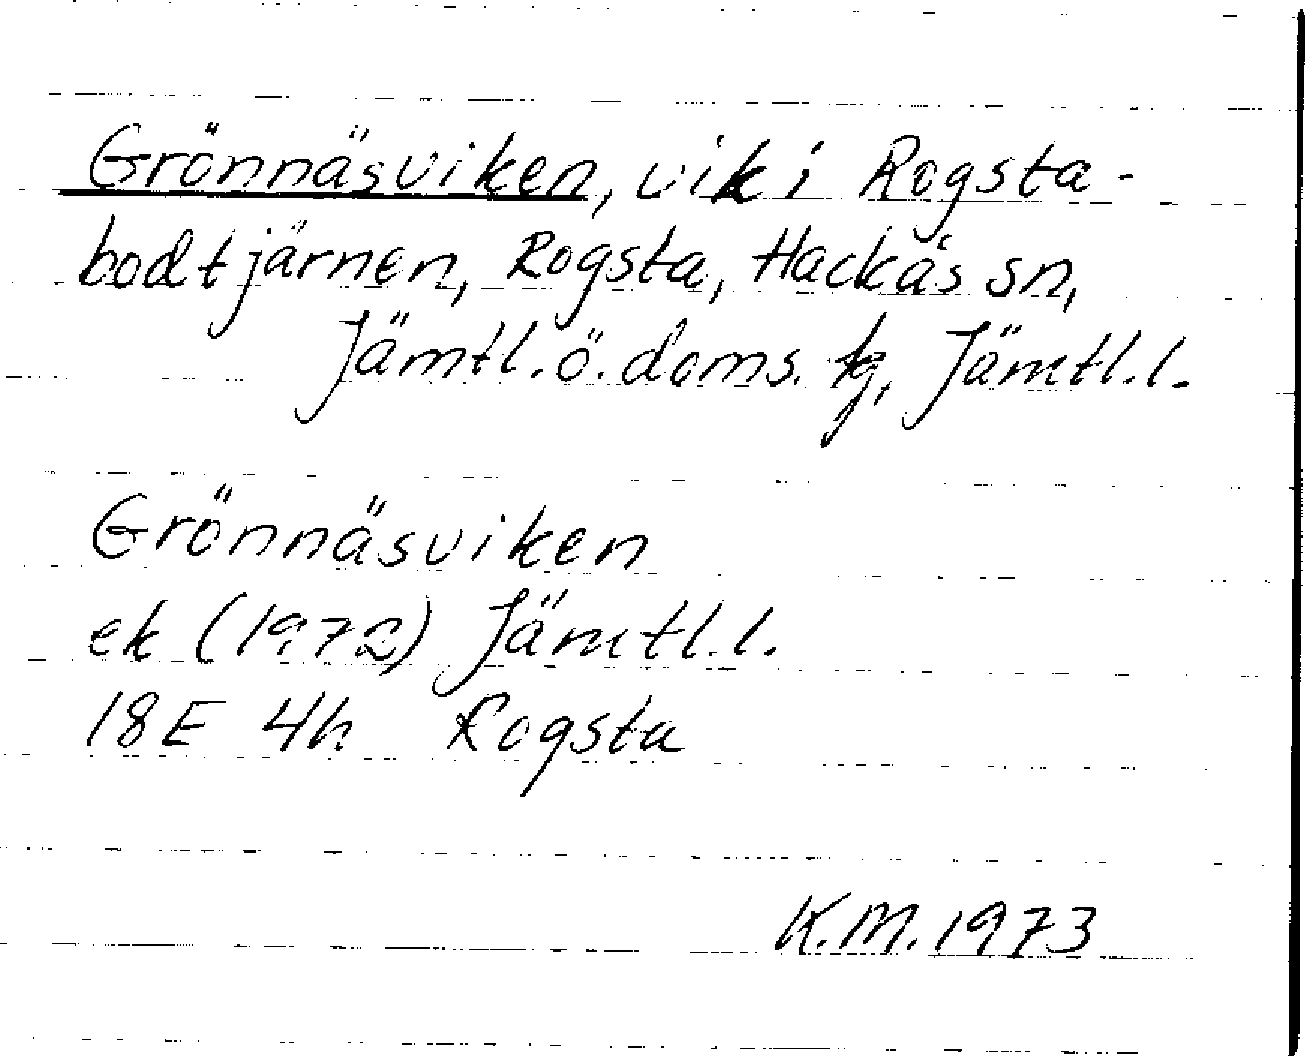 Grönnäsviken, vik i Rogsta-
bodtjärnen, Rogsta, Hackås sn,
Jämtl. ö. doms. tg, Jämtl. l.
Grönnäsviken
ek (1972) Jämtl. l.
18E 4h Rogsta
K.M. 1973